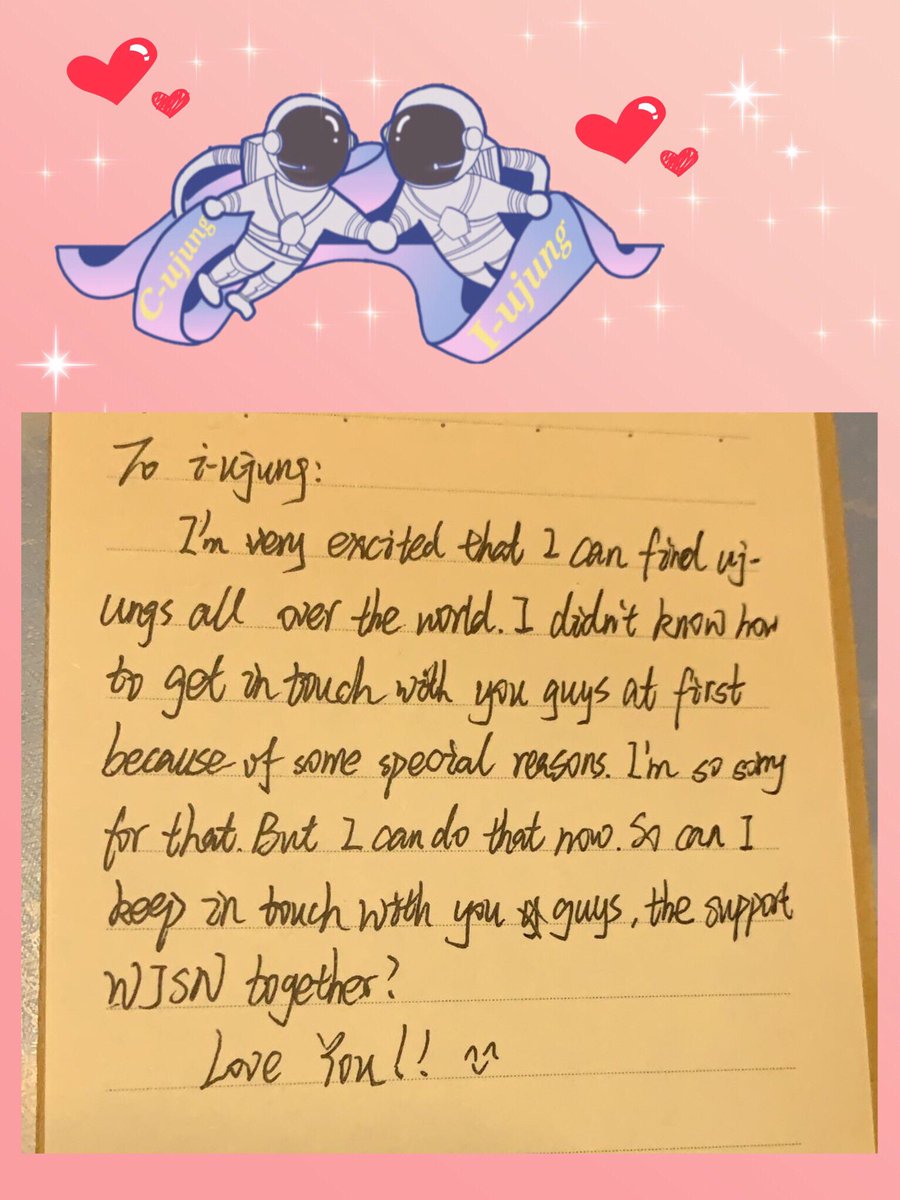 C-ujung
I-ujung
To i-ujung:
I'm very excited that I can find uj-
ungs all over the world. I didn't know how
to get in touch with you guys at first
because of some special reasons. I'm so sorry
for that. But I can do that now. So can I
keep in touch with you guys, the support
WJSN together?
Love You!! ^^